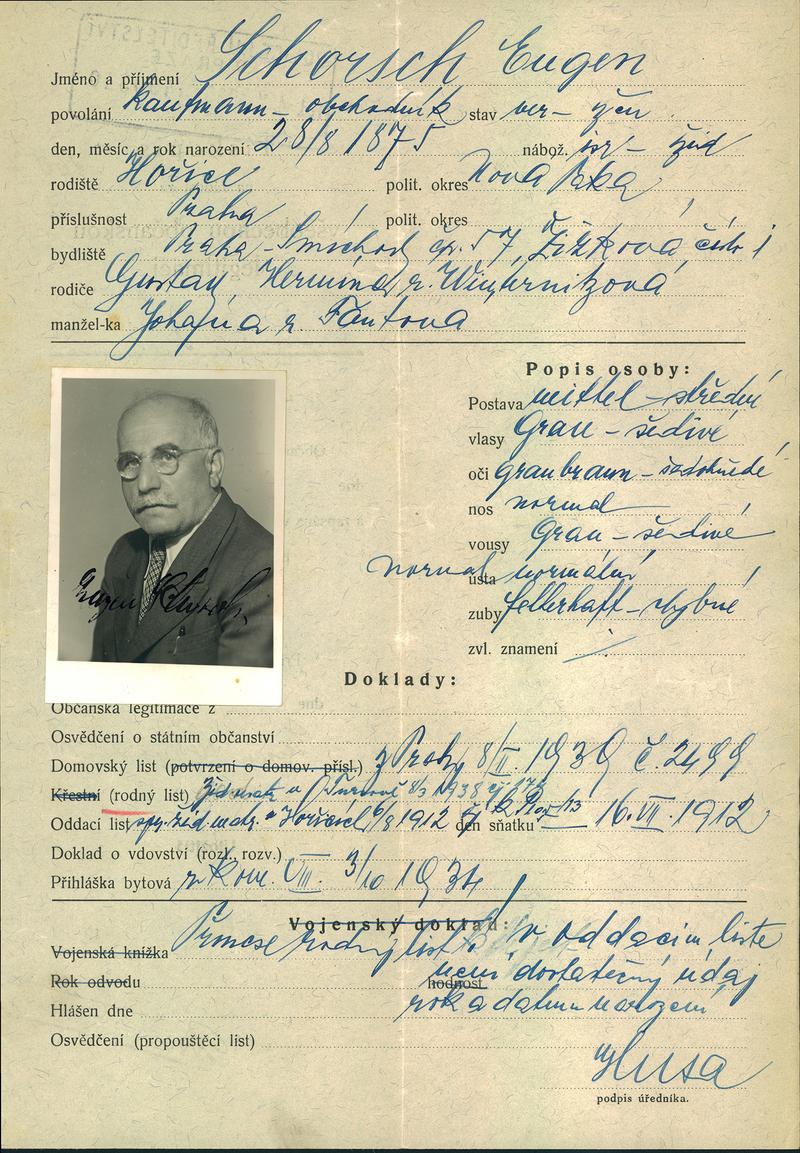 Jméno a příjmení Schorsch Eugen
povolání Kaufmann – obchodník stav ver – žen.
den, měsíc a rok narození 28/8 1875 nábož. isr – žid
rodiště Hořice polit. okres Nová Paka
příslušnost Praha polit. okres
bydliště Praha – Smíchov čp. 57, Žižková, číslo 1
rodiče Gustav, Hermína r. Winternitzová
manžel-ka Johana r. Fantová
Popis osoby:
Postava mittel – střední
vlasy Grau – šedivé
oči graubraun – šedohnědé
nos normal
vousy Grau – šedivé
ústa normal normální
zuby fellerhaft – chybné
zvl. znamení
Eugen Schorsch
Doklady:
Občanská legitimace z
Osvědčení o státním občanství
Domovský list (potvrzení o domov. přísl.) z Prahy 8/II. 1939 č. 2499
Křestní (rodný list) 8/3 1938
Oddací list žid. matr. Hořicích 6/8 1912 den sňatku 16. VII. 1912
Doklad o vdovství (rozl., rozv.)
Přihláška bytová z Kom. VIII. 3/10 1934
Vojenský doklad:
Vojenská knížka rodný list v oddacím liste
Rok odvodu hodnost není dostatečný údaj
Hlášen dne roka datum narození
Osvědčení (propouštěcí list)
Husa
podpis úředníka.